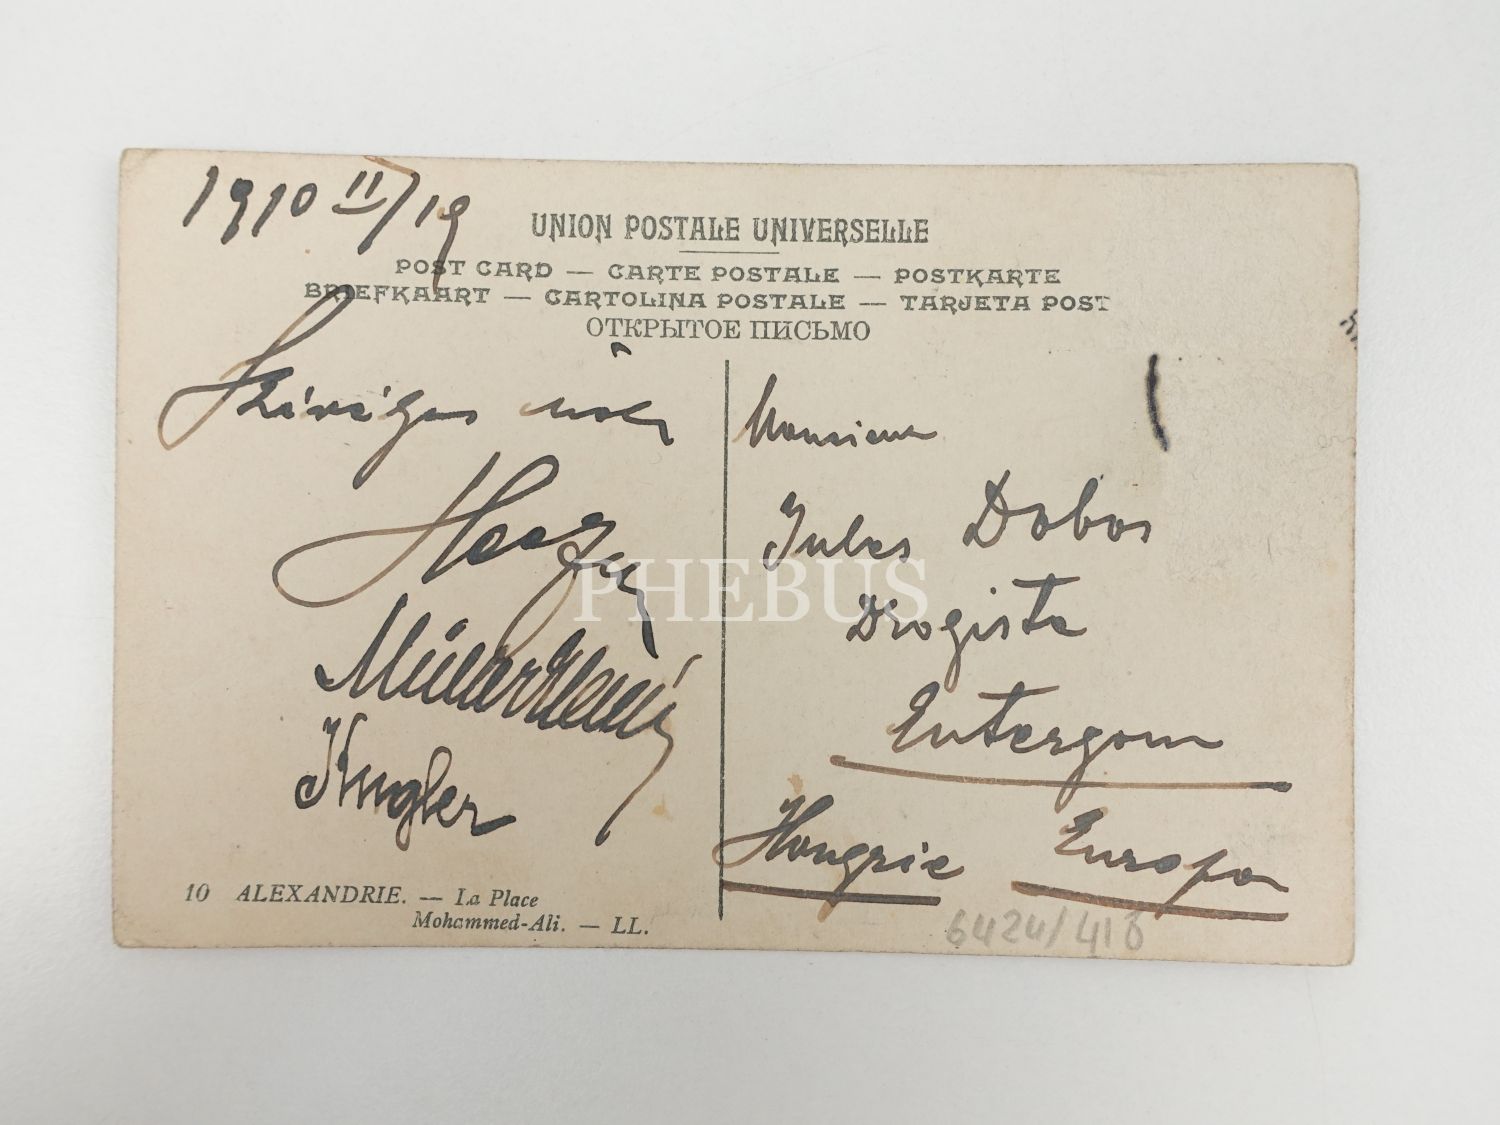 1910 II/19
UNION POSTALE UNIVERSELLE
POST CARD — CARTE POSTALE — POSTKARTE
BRIEFKAART — CARTOLINA POSTALE — TARJETA POST
ОТКРЫТОЕ ПИСЬМО
Szíves
Kugler
10 ALEXANDRIE. — La Place
Mohammed-Ali. — LL.
Monsieur
Jules Dobos
Drogista
Entergom
Hongrie Europa
6424/418
PHEBUS